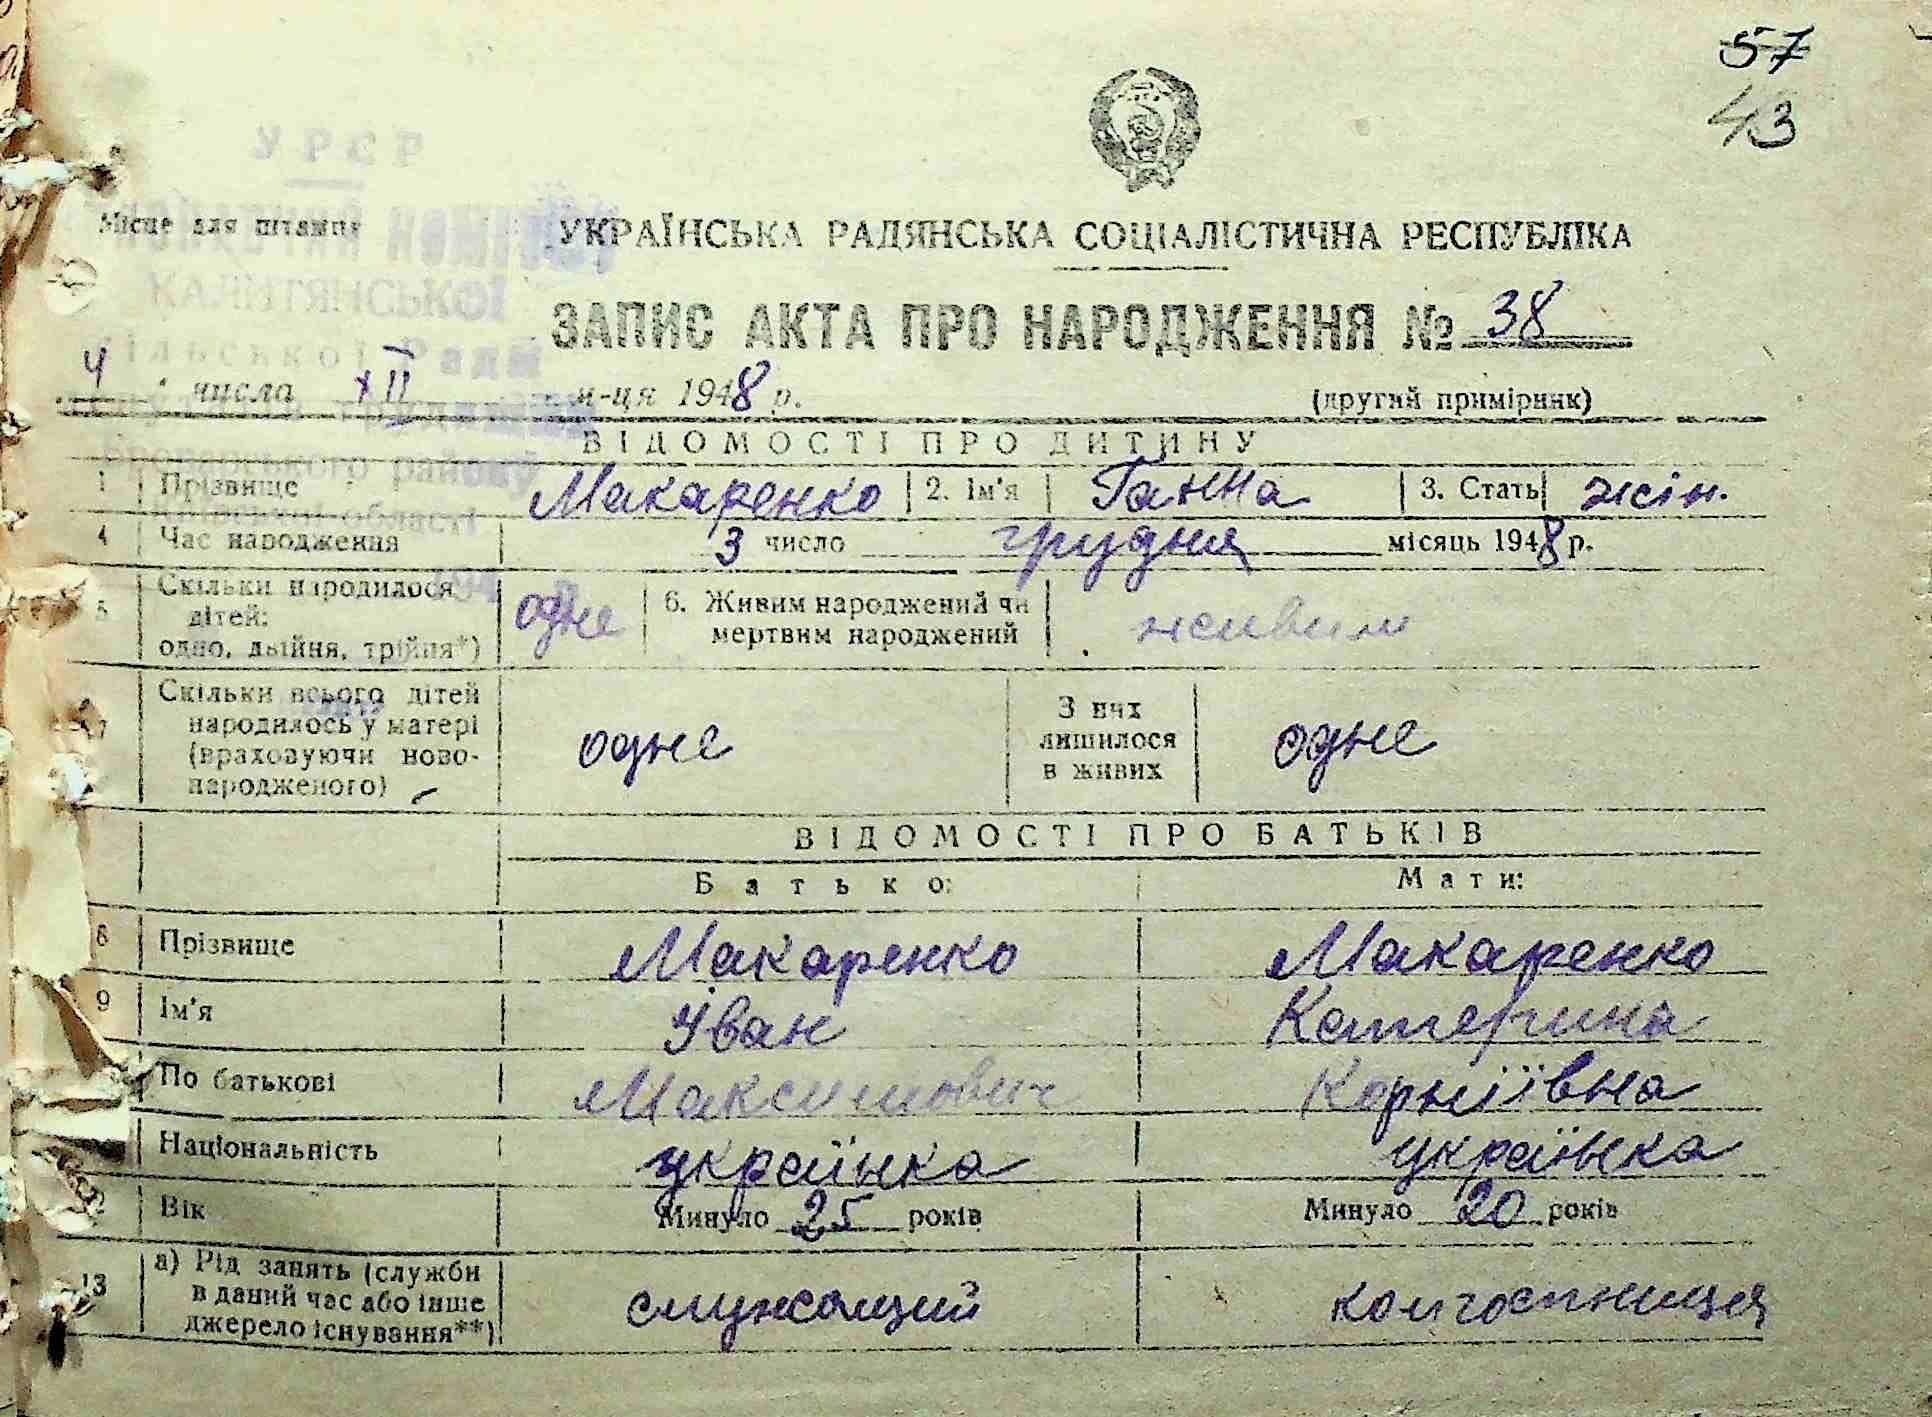 57
43
УРСР
Місце для штампу
УКРАЇНСЬКА РАДЯНСЬКА СОЦІАЛІСТИЧНА РЕСПУБЛІКА
КАЛИТЯНСЬКОЇ
ЗАПИС АКТА ПРО НАРОДЖЕННЯ № 38
Ради
4 числа XII м-ця 1948 р. (другий примірник)
ВІДОМОСТІ ПРО ДИТИНУ
району
1 Прізвище Макаренко 2. Ім'я Ганна 3. Стать жін.
області
4 Час народження 3 число грудня місяць 1948 р.
5 Скільки народилося дітей: одно, двійня, трійня*) одне 6. Живим народжений чи мертвим народжений живим
7 Скільки всього дітей народилось у матері (враховуючи ново-народженого) одне З них лишилося в живих одне
ВІДОМОСТІ ПРО БАТЬКІВ
Батько: Мати:
8 Прізвище Макаренко Макаренко
9 Ім'я Іван Катерина
По батькові Максимович Корніївна
Національність українка українка
2 Вік Минуло 25 років Минуло 20 років
13 а) Рід занять (служби в даний час або інше джерело існування**) служащий колгоспниця